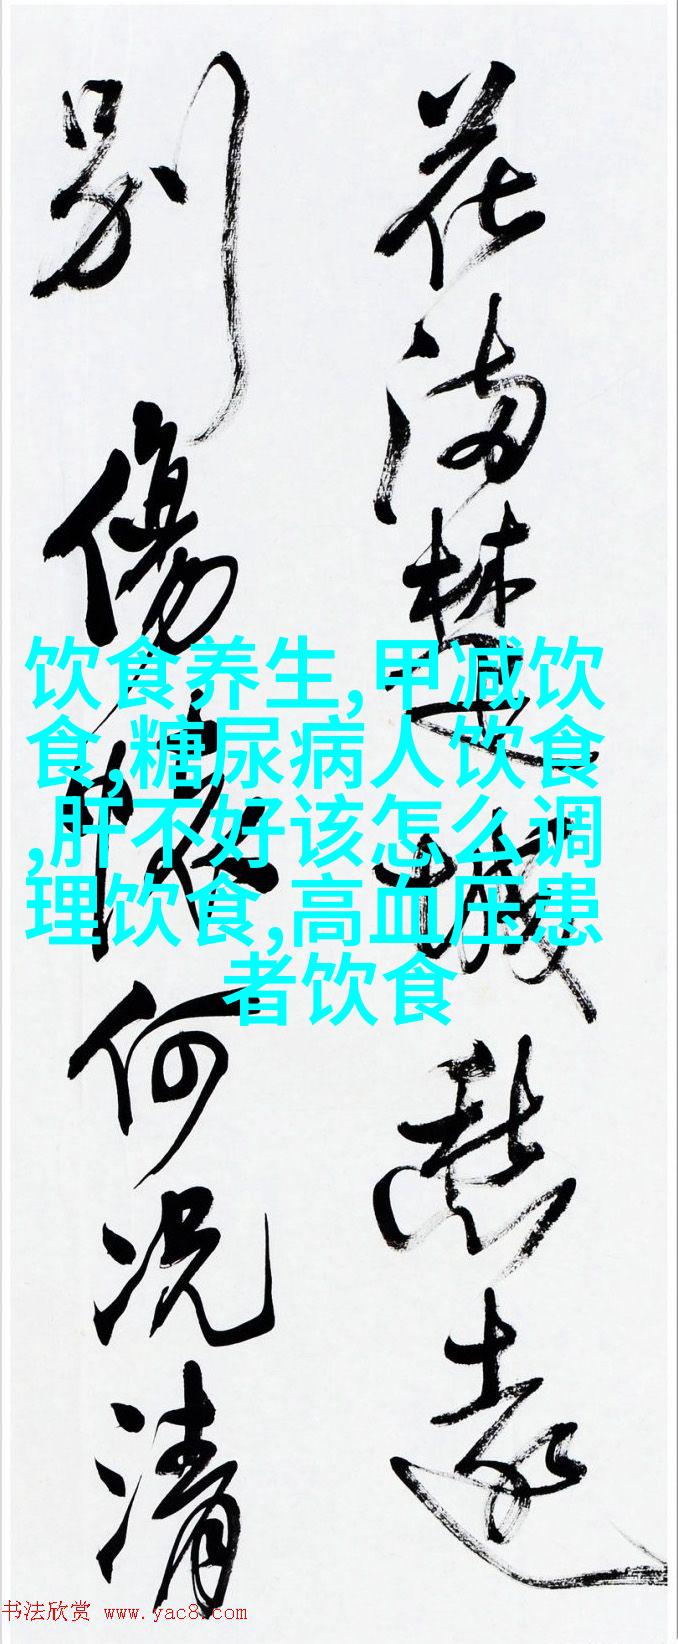 花满楚城愁遠
别傷懷何况清
饮食养生,甲减饮
食,糖尿病人饮食
,肝不好该怎么调
理饮食,高血压患
者饮食
书法欣赏 www.yac8.com